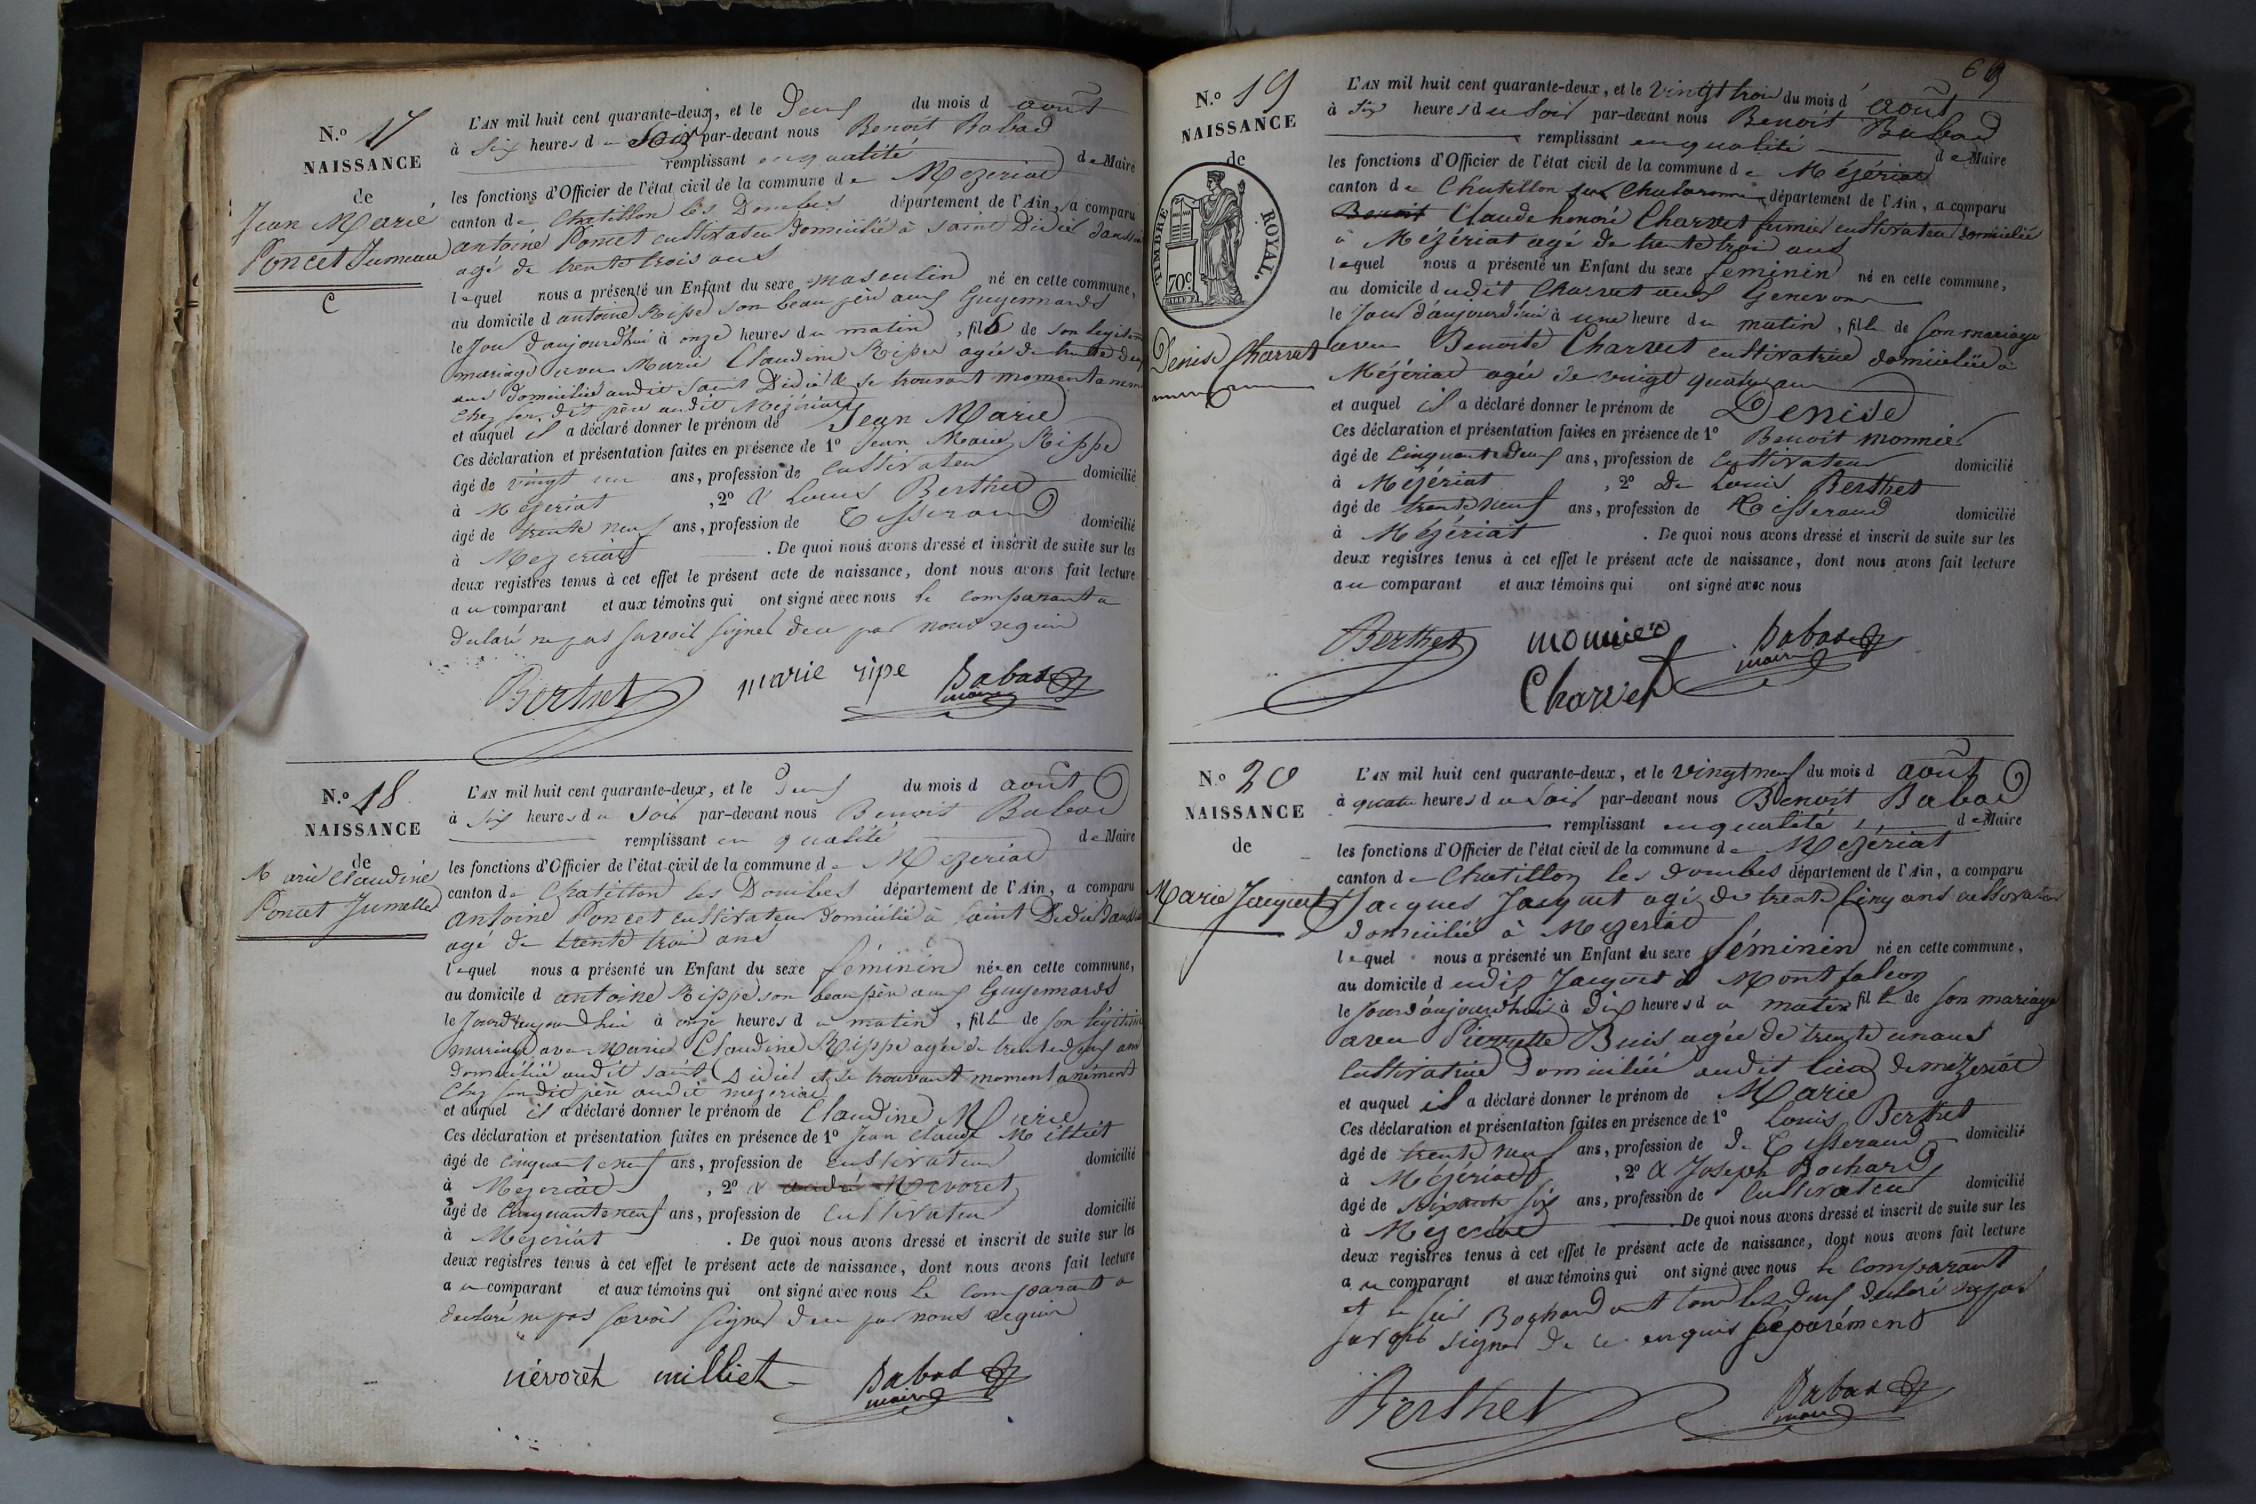 N.º 17
NAISSANCE
de
Jean Marie
Poncet Jumeau
L'AN mil huit cent quarante-deux, et le Deux du mois d août
à Six heures du Soir par-devant nous Benoit Babad
remplissant en qualité de Maire
les fonctions d'Officier de l'état civil de la commune de Mezeriat
canton de Chatillon les Dombes département de l'Ain, a comparu
antoine Poncet cultivateur domicilié à saint Didier d'aussiat
agé de trente trois ans
lequel nous a présenté un Enfant du sexe masculin né en cette commune,
au domicile d antoine Rippe son beau père aux Guyennards
le Jour d'aujourd'hui à onze heures du matin, fils de son legitime
mariage avec Marie Claudine Rippe agée de trente deux
ans domiciliée audit saint Didier & se trouvant momentanement
chez son dit père audit Mézériat
et auquel il a déclaré donner le prénom de Jean Marie
Ces déclaration et présentation faites en présence de 1º Jean Marie Rippe
âgé de vingt un ans, profession de cultivateur domicilié
à Mezeriat, 2º & Louis Berthet
âgé de trente neuf ans, profession de Tisserand domicilié
à Mezeriat. De quoi nous avons dressé et inscrit de suite sur les
deux registres tenus à cet effet le présent acte de naissance, dont nous avons fait lecture
au comparant et aux témoins qui ont signé avec nous le comparant a
declaré ne pas savoir signer de ce par nous requis
Berthet marie ripe Babad
maire
N.º 18
NAISSANCE
de
Marie Claudine
Poncet Jumelle
L'AN mil huit cent quarante-deux, et le Deux du mois d août
à Six heures du Soir par-devant nous Benoit Babad
remplissant en qualité de Maire
les fonctions d'Officier de l'état civil de la commune de Mezeriat
canton de Chatillon les Dombes département de l'Ain, a comparu
antoine Poncet cultivateur domicilié à saint Didier d'aussiat
agé de trente trois ans
lequel nous a présenté un Enfant du sexe féminin née en cette commune,
au domicile d antoine Rippe son beau père aux Guyennards
le Jour d'aujourd'hui à onze heures du matin, fille de son légitime
mariage avec Marie Claudine Rippe agée de trente deux ans
domiciliée audit saint Didier et se trouvant momentanément
chez son dit père audit mezeriat
et auquel il a déclaré donner le prénom de Claudine Marie
Ces déclaration et présentation faites en présence de 1º Jean Claude Milliet
âgé de cinquante neuf ans, profession de cultivateur domicilié
à Mezeriat, 2º & andré Nevoret
âgé de Cinquante neuf ans, profession de Cultivateur domicilié
à Mézériat. De quoi nous avons dressé et inscrit de suite sur les
deux registres tenus à cet effet le présent acte de naissance, dont nous avons fait lecture
au comparant et aux témoins qui ont signé avec nous Le Comparant a
declaré ne pas savoir signer de ce par nous requis
névoret milliet Babad
maire
6
N.º 19
NAISSANCE
de
TIMBRE ROYAL.
70c
Denise Charvet
L'AN mil huit cent quarante-deux, et le vingt trois du mois d' août
à Six heures du Soir par-devant nous Benoit Babad
remplissant en qualité de Maire
les fonctions d'Officier de l'état civil de la commune de Mézériat
canton de Chatillon sur Chalaronne département de l'Ain, a comparu
Benoit Claude honoré Charvet fermier cultivateur domicilié
à Mézériat agé de trente trois ans
lequel nous a présenté un Enfant du sexe feminin né en cette commune,
au domicile dudit Charvet aux
le Jour d'aujourd'hui à une heure du matin, fille de son mariage
avec Benoite Charvet cultivatrice domiciliée à
Mézériat agée de vingt quatre ans
et auquel il a déclaré donner le prénom de Denise
Ces déclaration et présentation faites en présence de 1º Benoit monnier
âgé de Cinquante deux ans, profession de Cultivateur domicilié
à Mézériat, 2º De Louis Berthet
âgé de trente neuf ans, profession de tisserand domicilié
à Mézériat. De quoi nous avons dressé et inscrit de suite sur les
deux registres tenus à cet effet le présent acte de naissance, dont nous avons fait lecture
au comparant et aux témoins qui ont signé avec nous
Berthet monnier Babad
maire
Charvet
N.º 20
NAISSANCE
de
Marie Jacquet
L'AN mil huit cent quarante-deux, et le vingt neuf du mois d août
à quatre heures du Soir par-devant nous Benoit Babad
remplissant en qualité de Maire
les fonctions d'Officier de l'état civil de la commune de Mezériat
canton de Chatillon les dombes département de l'Ain, a comparu
Jacques Jacquet agé de trente Cinq ans cultivateur
domicilié à Mezeriat
lequel nous a présenté un Enfant du sexe féminin né en cette commune,
au domicile dudit Jacquet à Montfalcon
le Jour d'aujourd'hui à Dix heures du matin fille de son mariage
avec Pierrette Buis agée de trente un ans
cultivatrice domiciliée audit lieu de mézériat
et auquel il a déclaré donner le prénom de Marie
Ces déclaration et présentation faites en présence de 1º Louis Berthet
âgé de trente neuf ans, profession de Tisserand domicilié
à Mézériat, 2º & Joseph Bochard
âgé de six ans, profession de Cultivateur domicilié
à Mézeriat De quoi nous avons dressé et inscrit de suite sur les
deux registres tenus à cet effet le présent acte de naissance, dont nous avons fait lecture
au comparant et aux témoins qui ont signé avec nous le comparant
et le Sieur Bochard ont tous les deux declaré ne pas
savoir signer de ce enquis séparément
Berthet Babad
maire